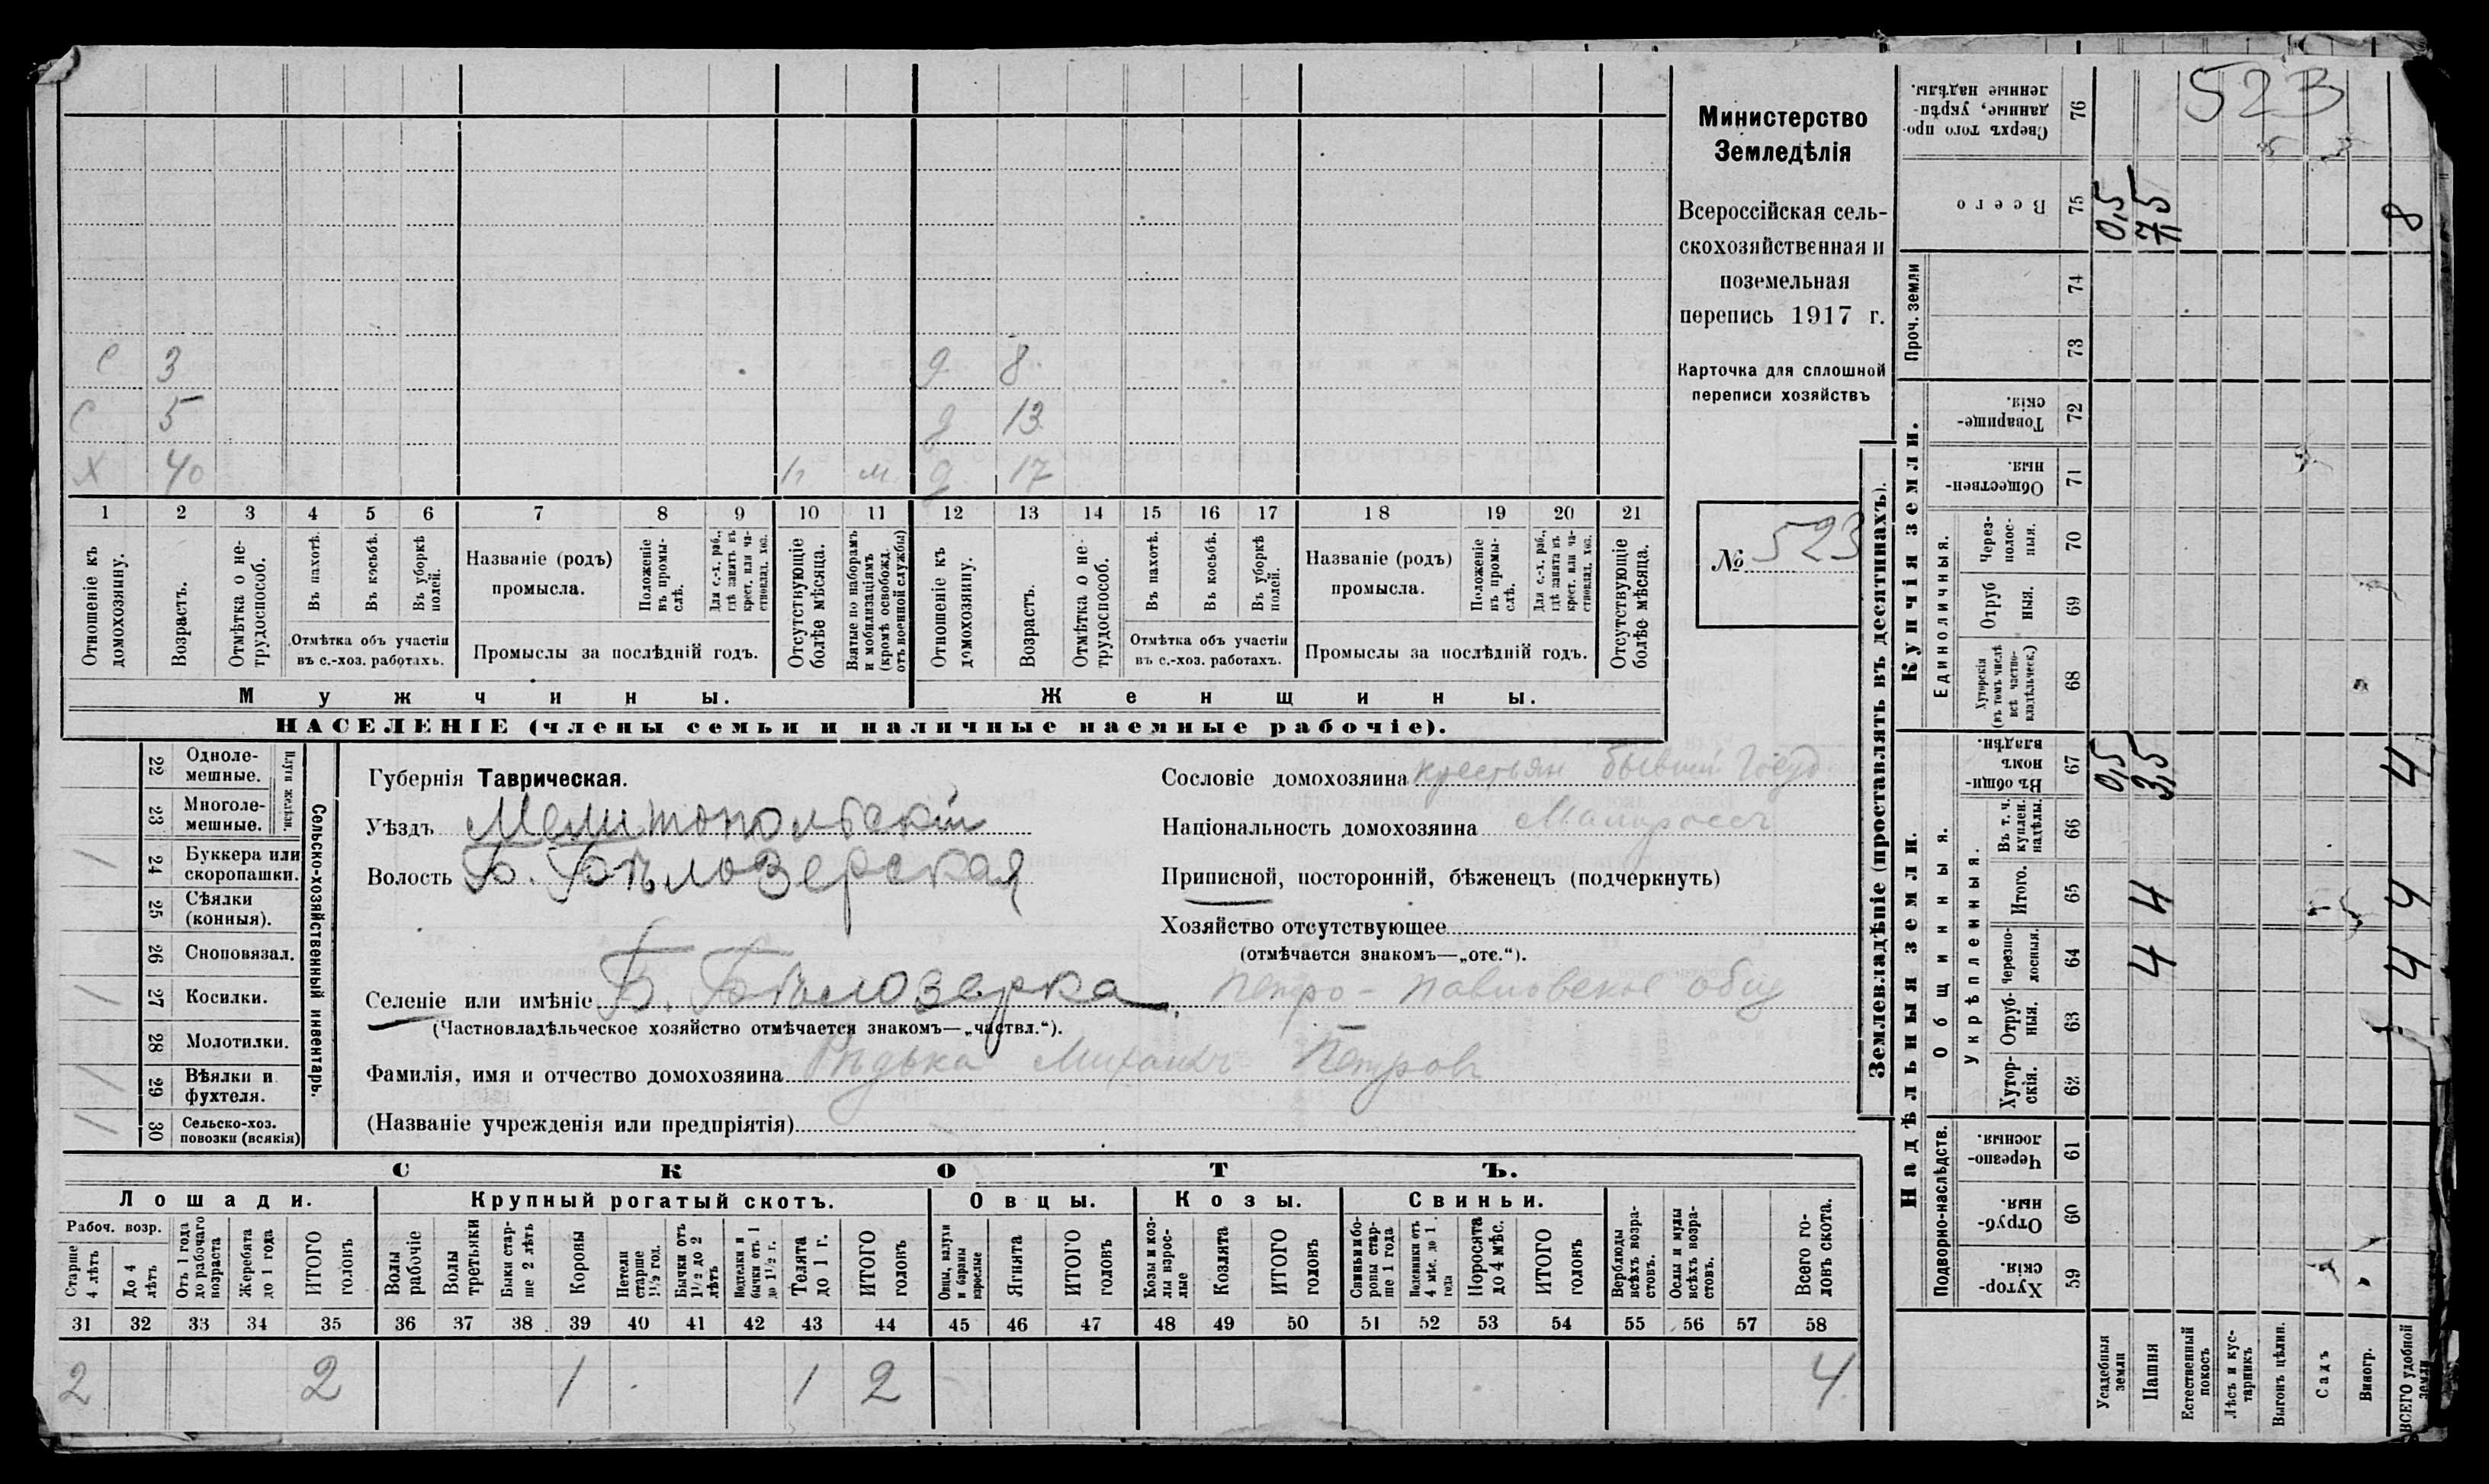 С 3 д 8
С 5 д 13
Х 40 п м д 17
1 2 3 4 5 6 7 8 9 10 11 12 13 14 15 16 17 18 19 20 21
Отношеніе къ домохозяину.
Возрастъ.
Отмѣтка о не-трудоспособ.
Въ пахотѣ.
Въ косьбѣ.
Въ уборкѣ полей.
Отмѣтка объ участіи
въ с.-хоз. работахъ.
Названіе (родъ)
промысла.
Положеніе въ промы-слѣ.
Для с.-х. раб., гдѣ занятъ въ крест. или ча-стновлад. хоз.
Промыслы за послѣдній годъ.
Отсутствующіе болѣе мѣсяца.
Взятые по наборамъ и мобилизаціямъ (кромѣ освобожд. отъ военной службы)
Отношеніе къ домохозяину.
Возрастъ.
Отмѣтка о не-трудоспособ.
Въ пахотѣ.
Въ косьбѣ.
Въ уборкѣ полей.
Отмѣтка объ участіи
въ с.-хоз. работахъ.
Названіе (родъ)
промысла.
Положеніе въ промы-слѣ.
Для с.-х. раб., гдѣ занятъ въ крест. или ча-стновлад. хоз.
Промыслы за послѣдній годъ.
Отсутствующіе болѣе мѣсяца.
Мужчины.
Женщины.
НАСЕЛЕНІЕ (члены семьи и наличные наемные рабочіе).
Министерство
Земледѣлія
Всероссійская сель-
скохозяйственная и
поземельная
перепись 1917 г.
Карточка для сплошной
переписи хозяйствъ
№ 523
22 Одноле-мешные.
23 Многоле-мешные.
Плуги желѣзн.
/ 24 Буккера или скоропашки.
25 Сѣялки (конныя).
26 Сноповязал.
/ 27 Косилки.
28 Молотилки.
/ 29 Вѣялки и фухтеля.
/ 30 Сельско-хоз. повозки (всякія)
Сельско-хозяйственный инвентарь.
Губернія Таврическая.
Уѣздъ Мелитопольскій
Волость Б. Бѣлозерская
Селеніе или имѣніе Б. Бѣлозерка, Петро-Павловское общ
(Частновладѣльческое хозяйство отмѣчается знакомъ—„частвл.“).
Фамилія, имя и отчество домохозяина Рѣдька Михаилъ Петров
(Названіе учрежденія или предпріятія)
Сословіе домохозяина крестьян бывший Госуд
Національность домохозяина Малороссъ
Приписной, посторонній, бѣженецъ (подчеркнуть)
Хозяйство отсутствующее
(отмѣчается знакомъ—„отс.“).
СКОТЪ.
Лошади. Крупный рогатый скотъ. Овцы. Козы. Свиньи.
Рабоч. возр.
Старше 4 лѣтъ
До 4 лѣтъ
Отъ 1 года до рабочаго возраста
Жеребята до 1 года
ИТОГО головъ
Волы рабочіе
Волы третьяки
Быки стар-ше 2 лѣтъ
Коровы
Нетели старше 1½ год.
Бычки отъ 1½ до 2 лѣтъ
Подтелки и бычки отъ 1 до 1½ г.
Телята до 1 г.
ИТОГО головъ
Овцы, валухи и бараны взрослые
Ягнята
ИТОГО головъ
Козы и коз-лы взрос-лые
Козлята
ИТОГО головъ
Свиньи и бо-ровы стар-ше 1 года
Подсвинки отъ 4 мѣс. до 1 года
Поросята до 4 мѣс.
ИТОГО головъ
Верблюды всѣхъ возра-стовъ.
Ослы и мулы всѣхъ возра-стовъ.
Всего го-ловъ скота.
31 32 33 34 35 36 37 38 39 40 41 42 43 44 45 46 47 48 49 50 51 52 53 54 55 56 57 58
2 2 1 1 2 4
Землевладѣніе (проставлять въ десятинахъ).
523
Сверхъ того про-данные, укрѣп-ленные надѣлы. 76
Всего 75 0,5 7,5 8
Проч. земли 74 73
Купчія земли.
Товарище-скія. 72
Обществен-ныя. 71
Единоличныя.
Через-полос-ныя. 70
Отруб ныя. 69
Хуторскія (въ томъ числѣ всѣ частно-владѣльческ.) 68
Надѣльныя земли.
Общинныя.
Въ общи-номъ владѣн. 67 0,5 3,5 4
Укрѣпленныя.
Въ т. ч. куплен. надѣлы. 66
Итого. 65 4 4
Черезпо-лосныя. 64 4 4
Отруб-ныя. 63
Хутор-скія. 62
Подворно-наслѣдств.
Черезпо-лосныя. 61
Отруб-ныя. 60
Хутор-скія. 59
Усадебныя земли
Пашня
Естественный покосъ
Лѣсъ и кус-тарникъ
Выгонъ цѣлин.
Садъ
Виногр.
ВСЕГО удобной земли